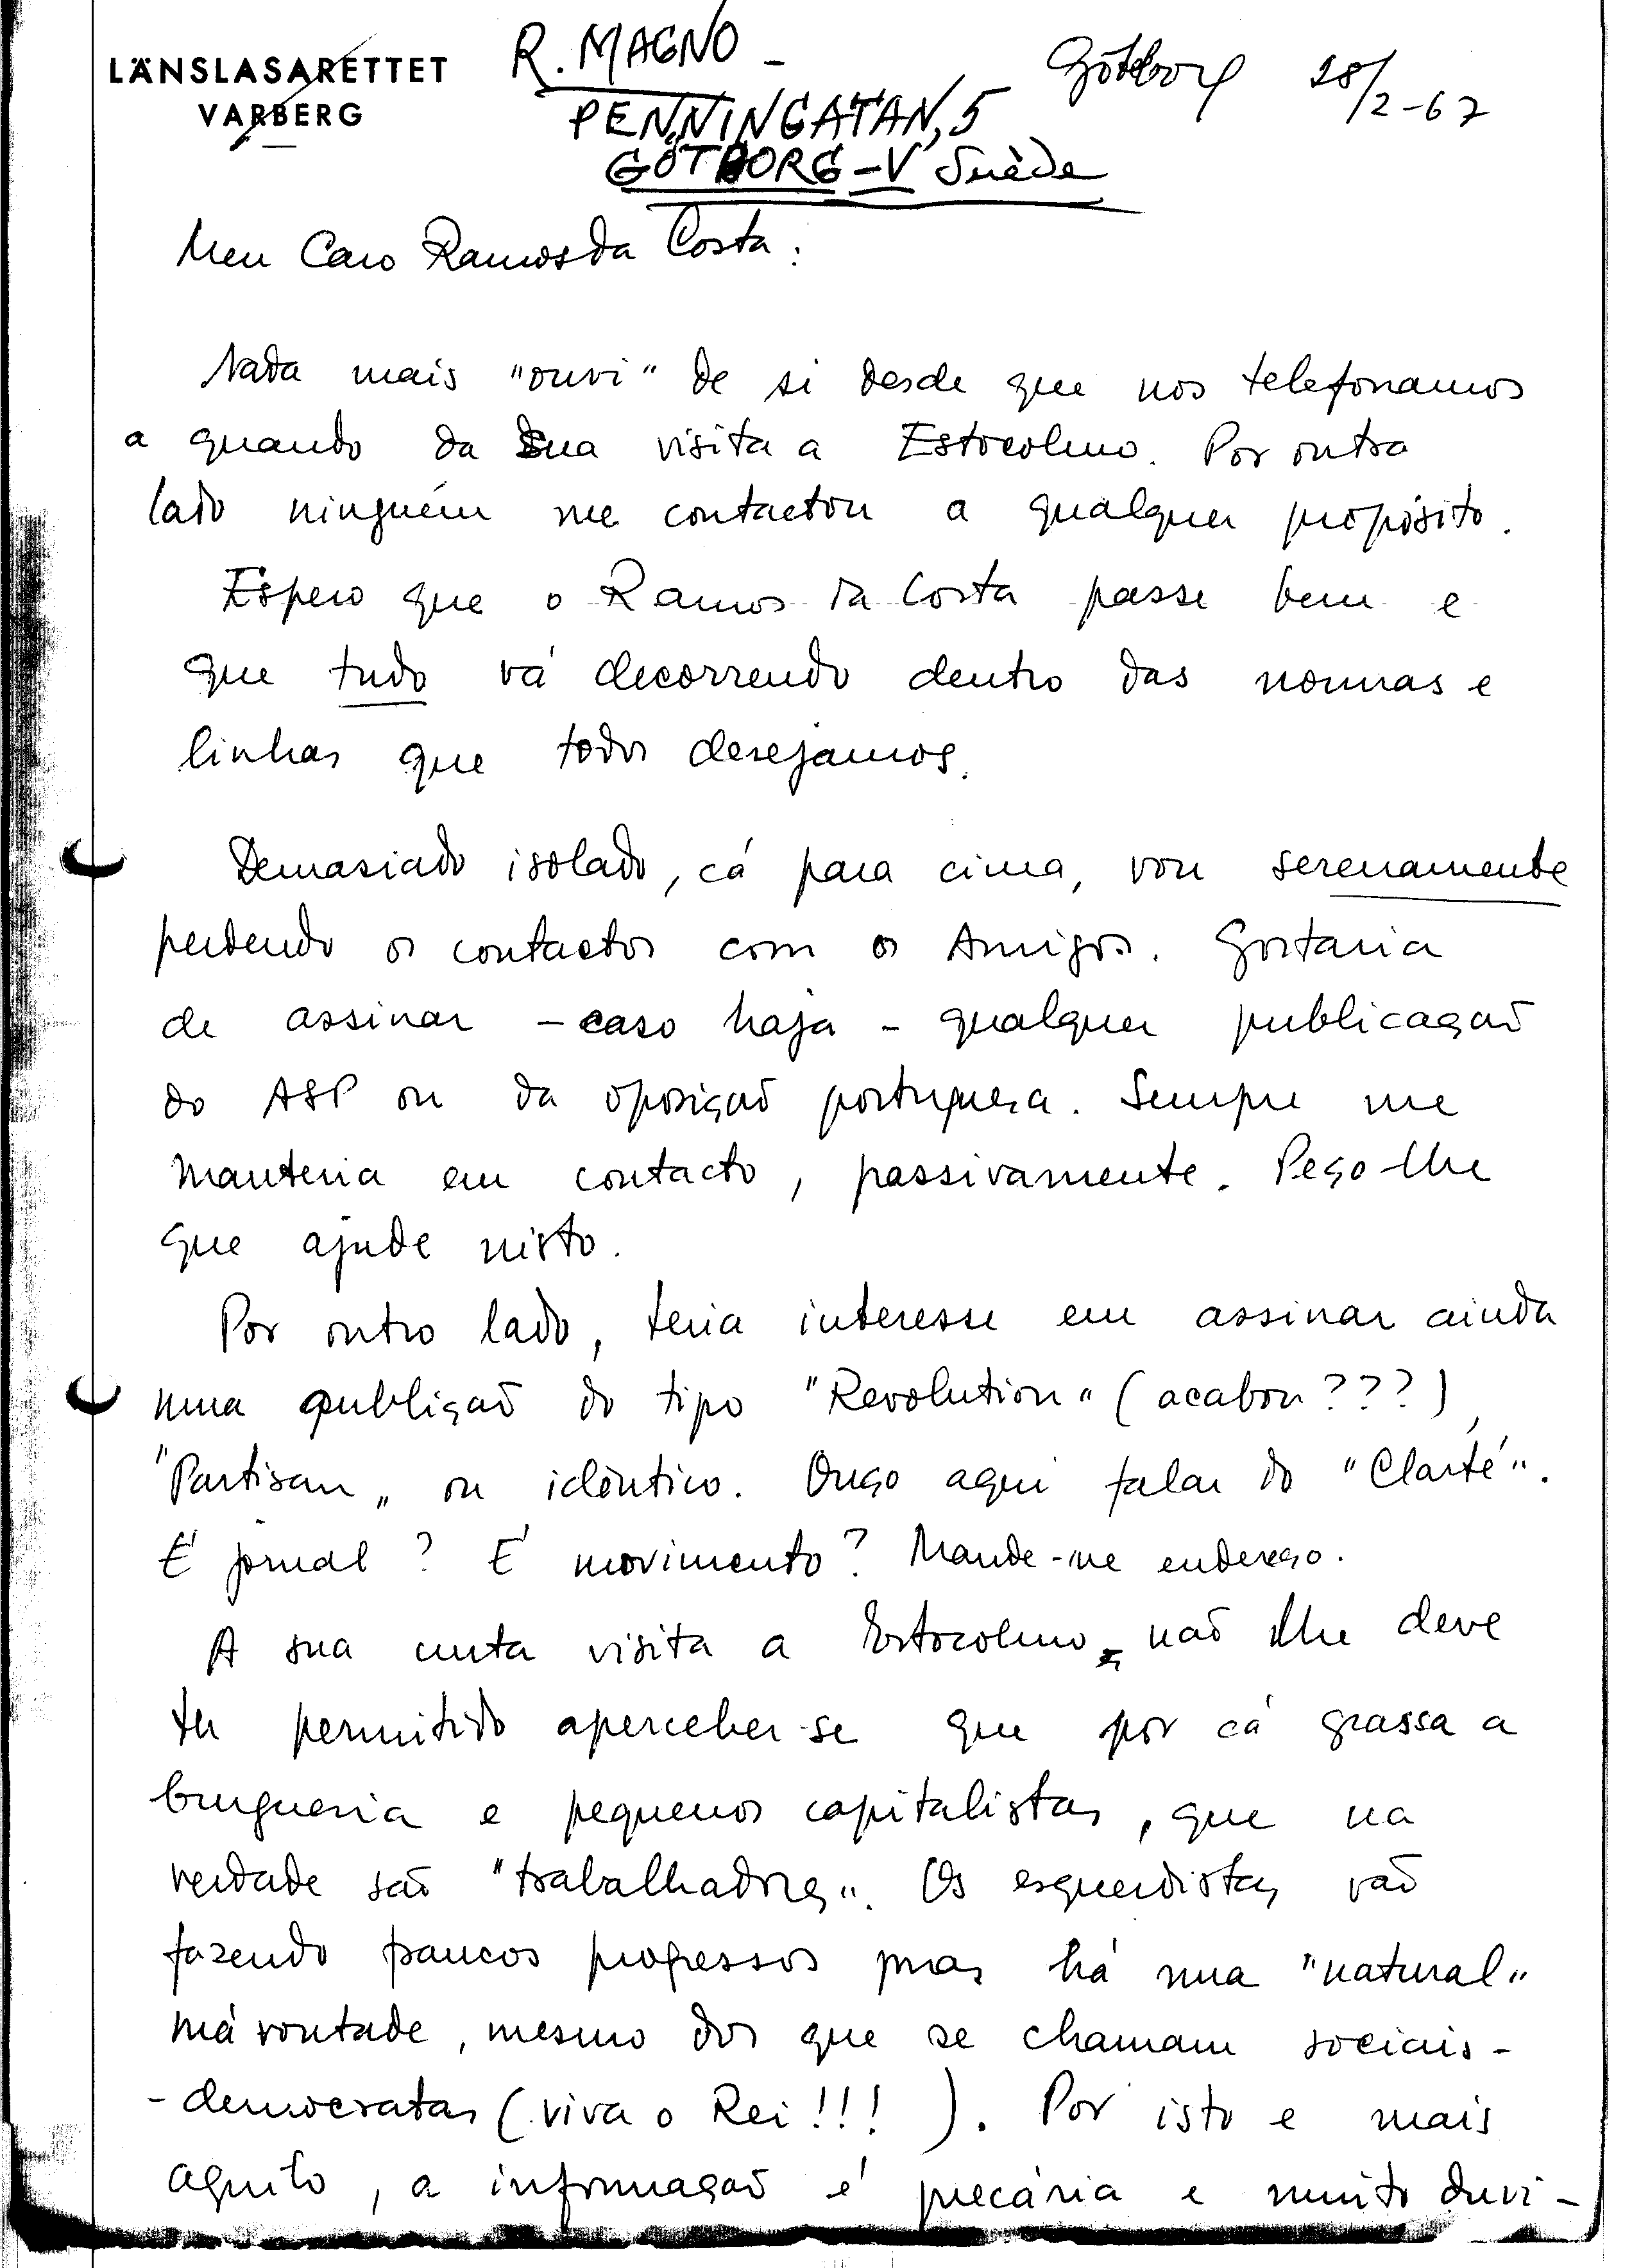 LÄNSLASARETTET
VARBERG
R. MAGNO -
PENNINGATAN, 5
GÖTBORG - V Suède
Göteborg 28/2-67
Meu Caro Ramos da Costa:
Nada mais "ouvi" de si desde que nos telefonamos
a quando da Sua visita a Estocolmo. Por outro
lado ninguém me contactou a qualquer propósito.
Espero que o Ramos da Costa passe bem e
que tudo vá decorrendo dentro das normas e
linhas que todos desejamos.
Demasiado isolado, cá para cima, vou serenamente
perdendo os contactos com os Amigos. Gostaria
de assinar - caso haja - qualquer publicação
do ASP ou da oposição portuguesa. Sempre me
manteria em contacto, passivamente. Peço-lhe
que ajude nisto.
Por outro lado, teria interesse em assinar ainda
uma publição do tipo "Revolution" (acabou???),
"Partisan" ou idêntico. Ouço aqui falar do "Clarté".
É jornal? É movimento? Mande-me endereço.
A sua curta visita a Estocolmo não lhe deve
ter permitido aperceber-se que por cá grassa a
burgueria e pequenos capitalistas, que na
verdade são "trabalhadores". Os esquerdistas vão
fazendo francos progressos mas há uma "natural"
má vontade, mesmo dos que se chamam sociais-
-democratas (viva o Rei!!!). Por isto e mais
aquilo, a informação é precária e muito duvi-